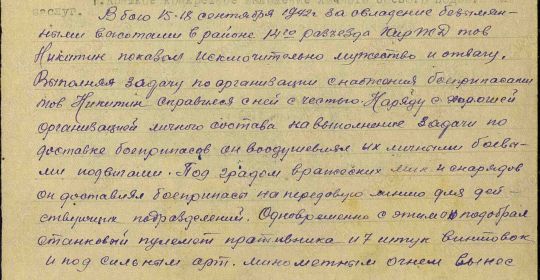 заслуг.
В бою 15-18 сентября 1942 г за овладение безымян-
ными высотами в районе 14го разъезда КирЖД тов
Никитин показал исключительно мужество и отвагу.
Выполняя задачу по организации снабжения боеприпасами
тов Никитин справился с ней с честью. Наряду с хорошей
организацией личного состава на выполнение задачи по
доставке боеприпасов он воодушевлял их личными боевы-
ми подвигами. Под градом вражеских мин и снарядов
он доставлял боеприпасы на передовую линию для дей-
ствующих подразделений. Одновременно с этим он подобрал
станковой пулемет противника и 7 штук винтовок
и под сильным арт. минометным огнем вынес